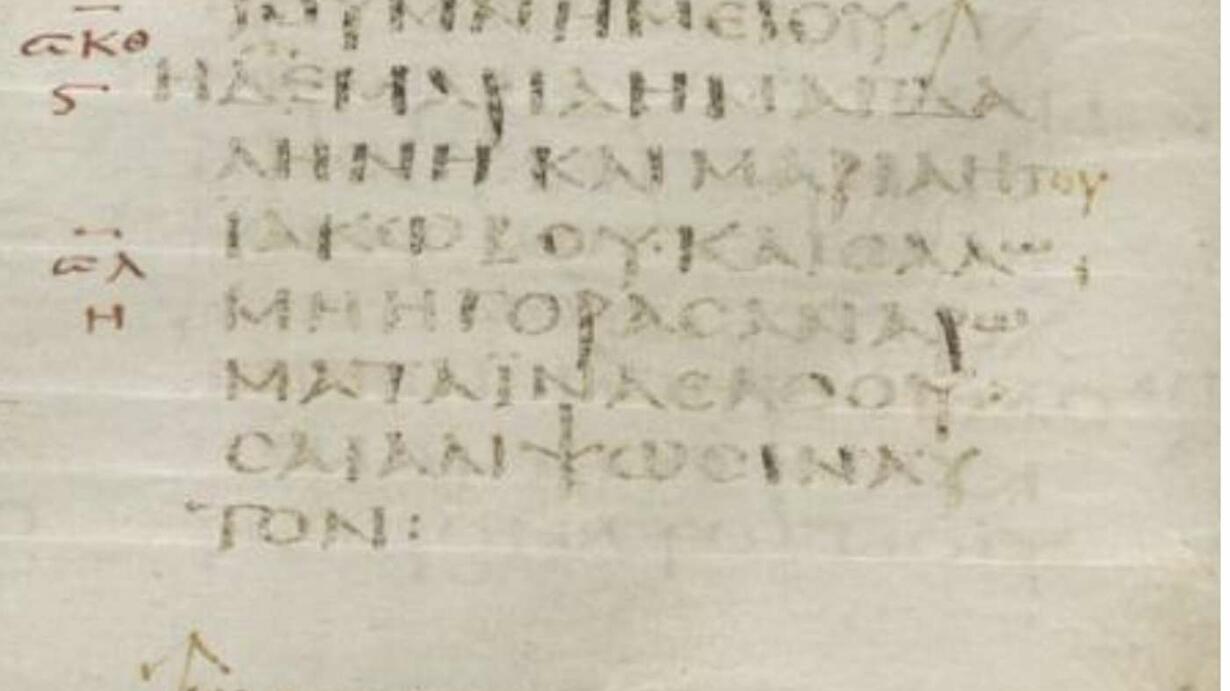 ΤΟΥΜΝΗΜΕΙΟΥ·
σκθ ϛ
ΗΔΕΜΑΡΙΑΗΜΑΓΔΑ
ΛΗΝΗΚΑΙΜΑΡΙΑΗΤΟΥ
σλ
ΙΑΚΩΒΟΥ·ΚΑΙϹΑΛω
Η
ΜΗΗΓΟΡΑϹΑΝΑΡω
ΜΑΤΑΪΝΑΕΛΘΟΥ
ϹΑΙΑΛΙΨΩϹΙΝΑΥ
ΤΟΝ: